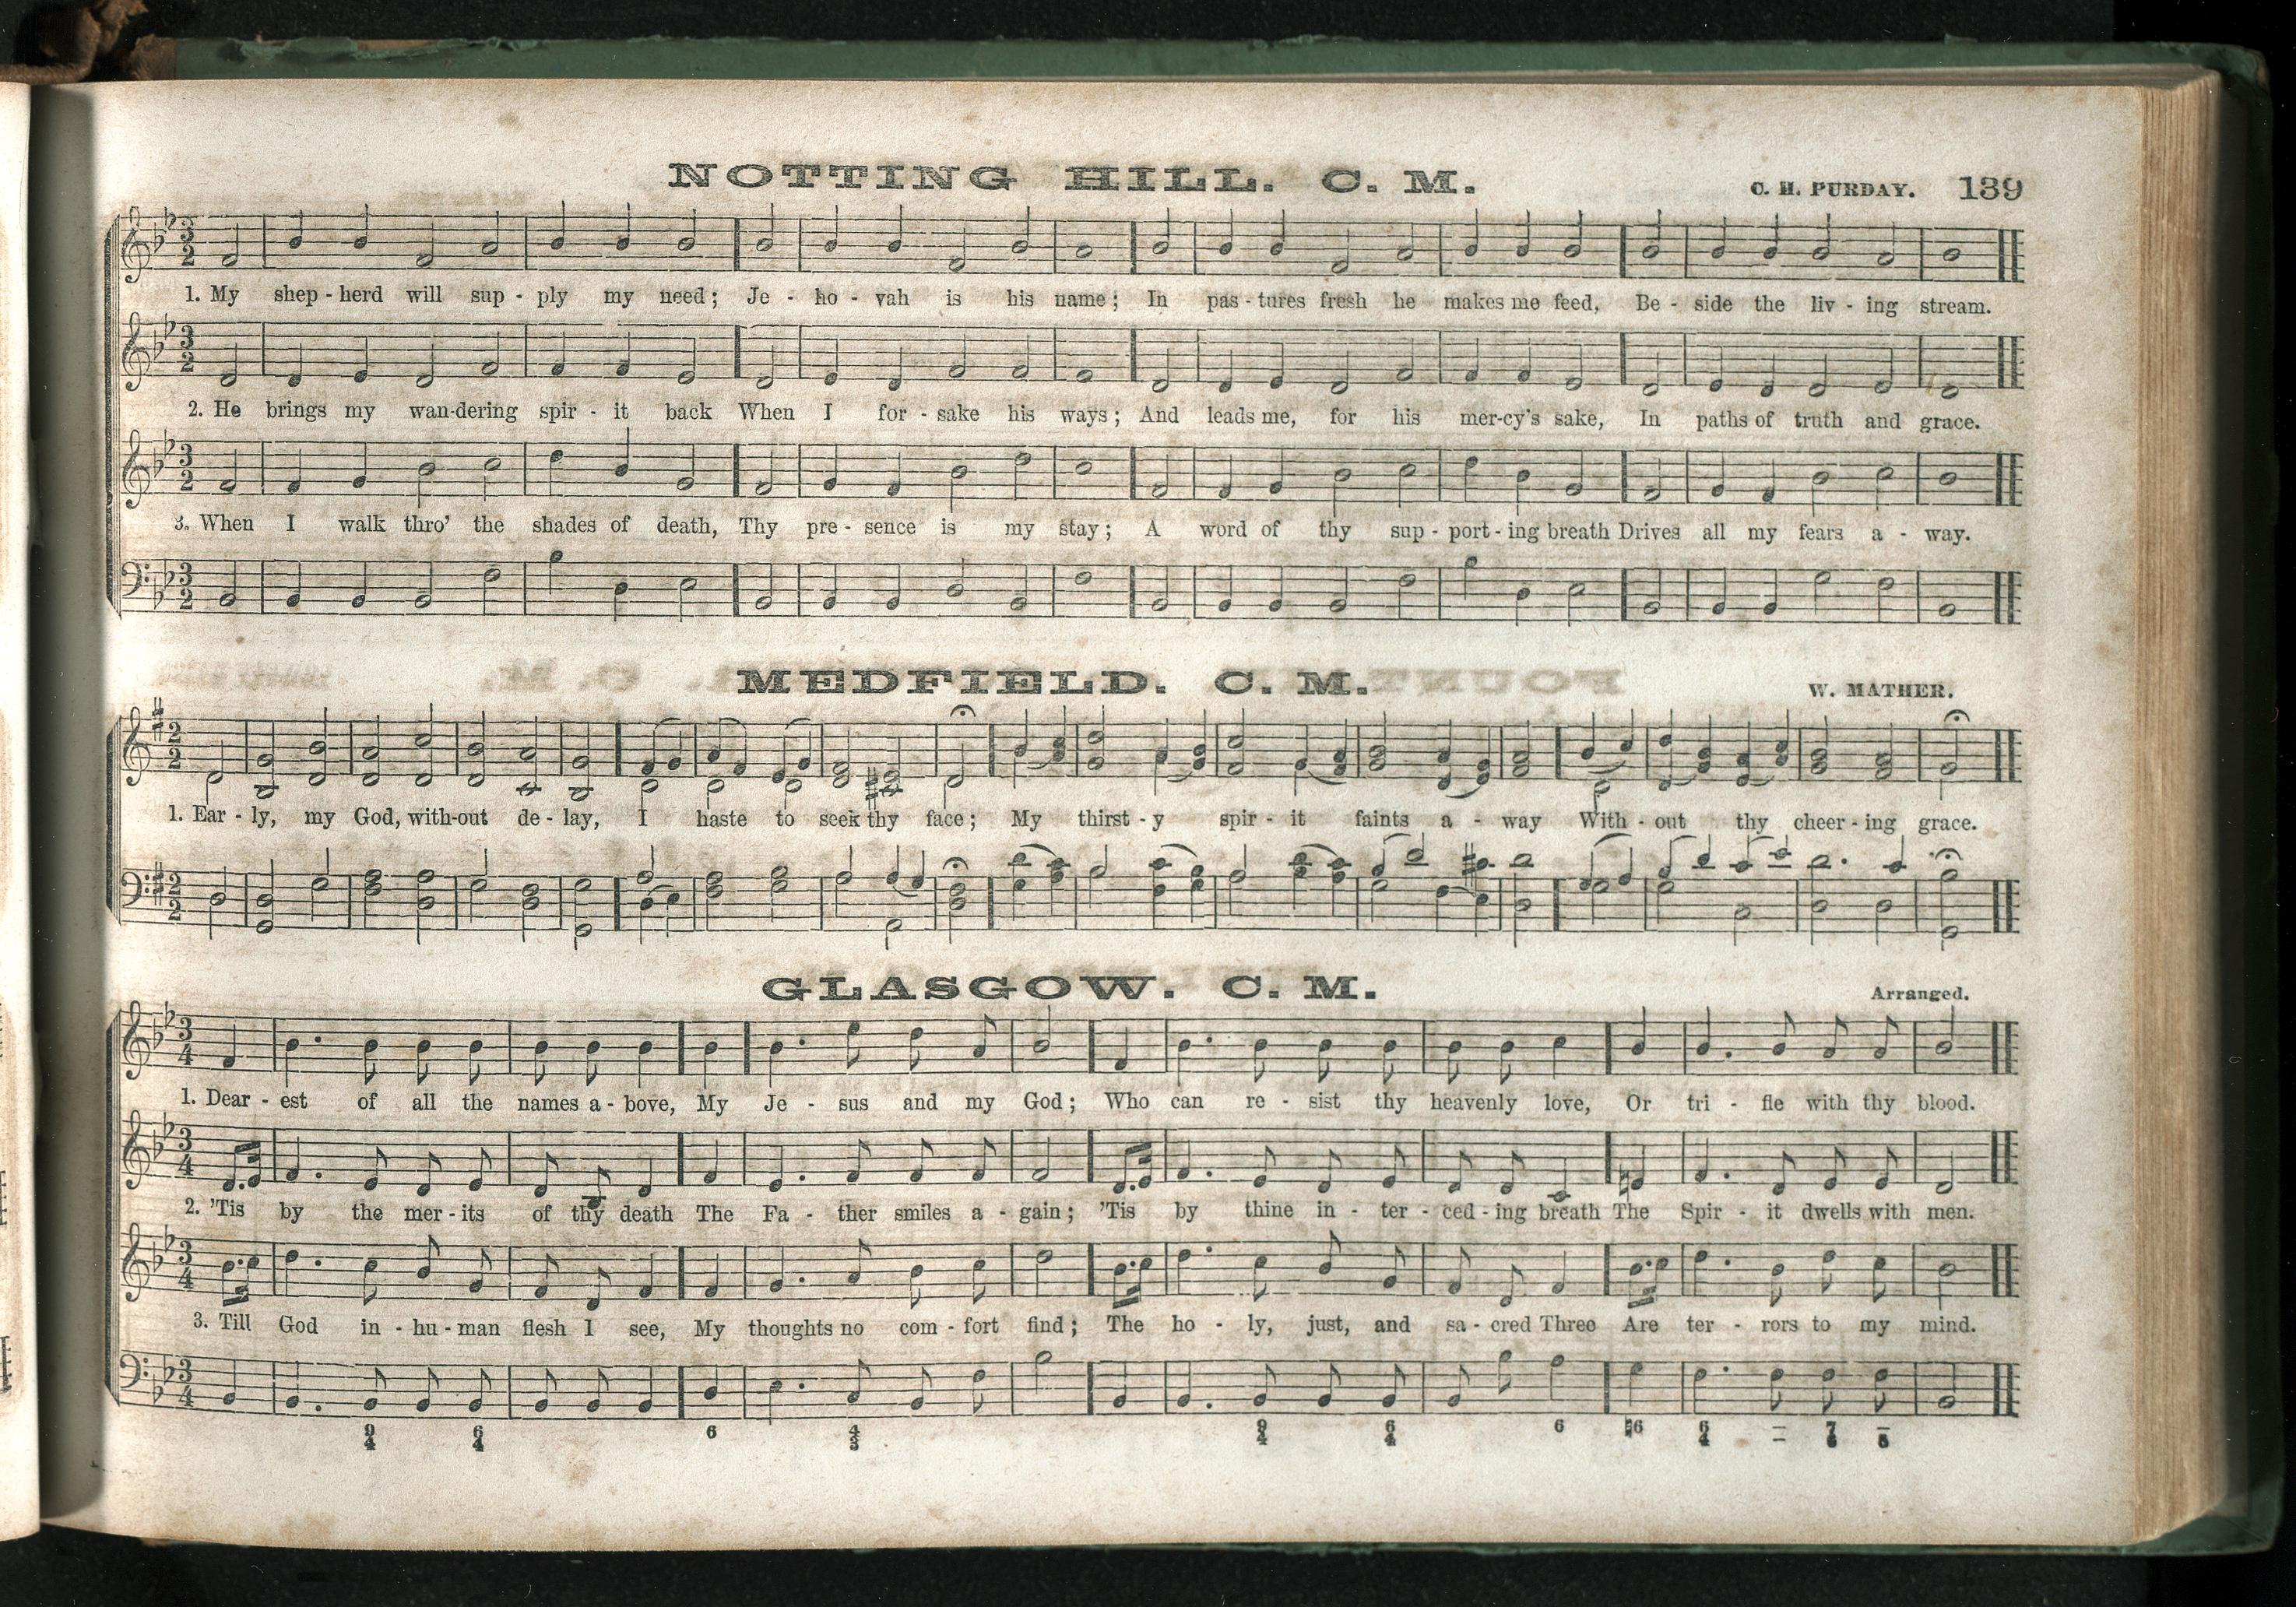 NOTTING HILL. C. M. C. H. PURDAY. 139
1. My shep - herd will sup - ply my need ; Je - ho - vah is his name ; In pas - tures fresh he makes me feed, Be - side the liv - ing stream.
2. He brings my wan-dering spir - it back When I for - sake his ways ; And leads me, for his mer-cy's sake, In paths of truth and grace.
3. When I walk thro' the shades of death, Thy pre - sence is my stay ; A word of thy sup - port - ing breath Drives all my fears a - way.
MEDFIELD. C. M. W. MATHER.
1. Ear - ly, my God, with-out de - lay, I haste to seek thy face ; My thirst - y spir - it faints a - way With - out thy cheer - ing grace.
GLASGOW. C. M. Arranged.
1. Dear - est of all the names a - bove, My Je - sus and my God ; Who can re - sist thy heavenly love, Or tri - fle with thy blood.
2. 'Tis by the mer - its of thy death The Fa - ther smiles a - gain ; 'Tis by thine in - ter - ced - ing breath The Spir - it dwells with men.
3. Till God in - hu - man flesh I see, My thoughts no com - fort find ; The ho - ly, just, and sa - cred Three Are ter - rors to my mind.